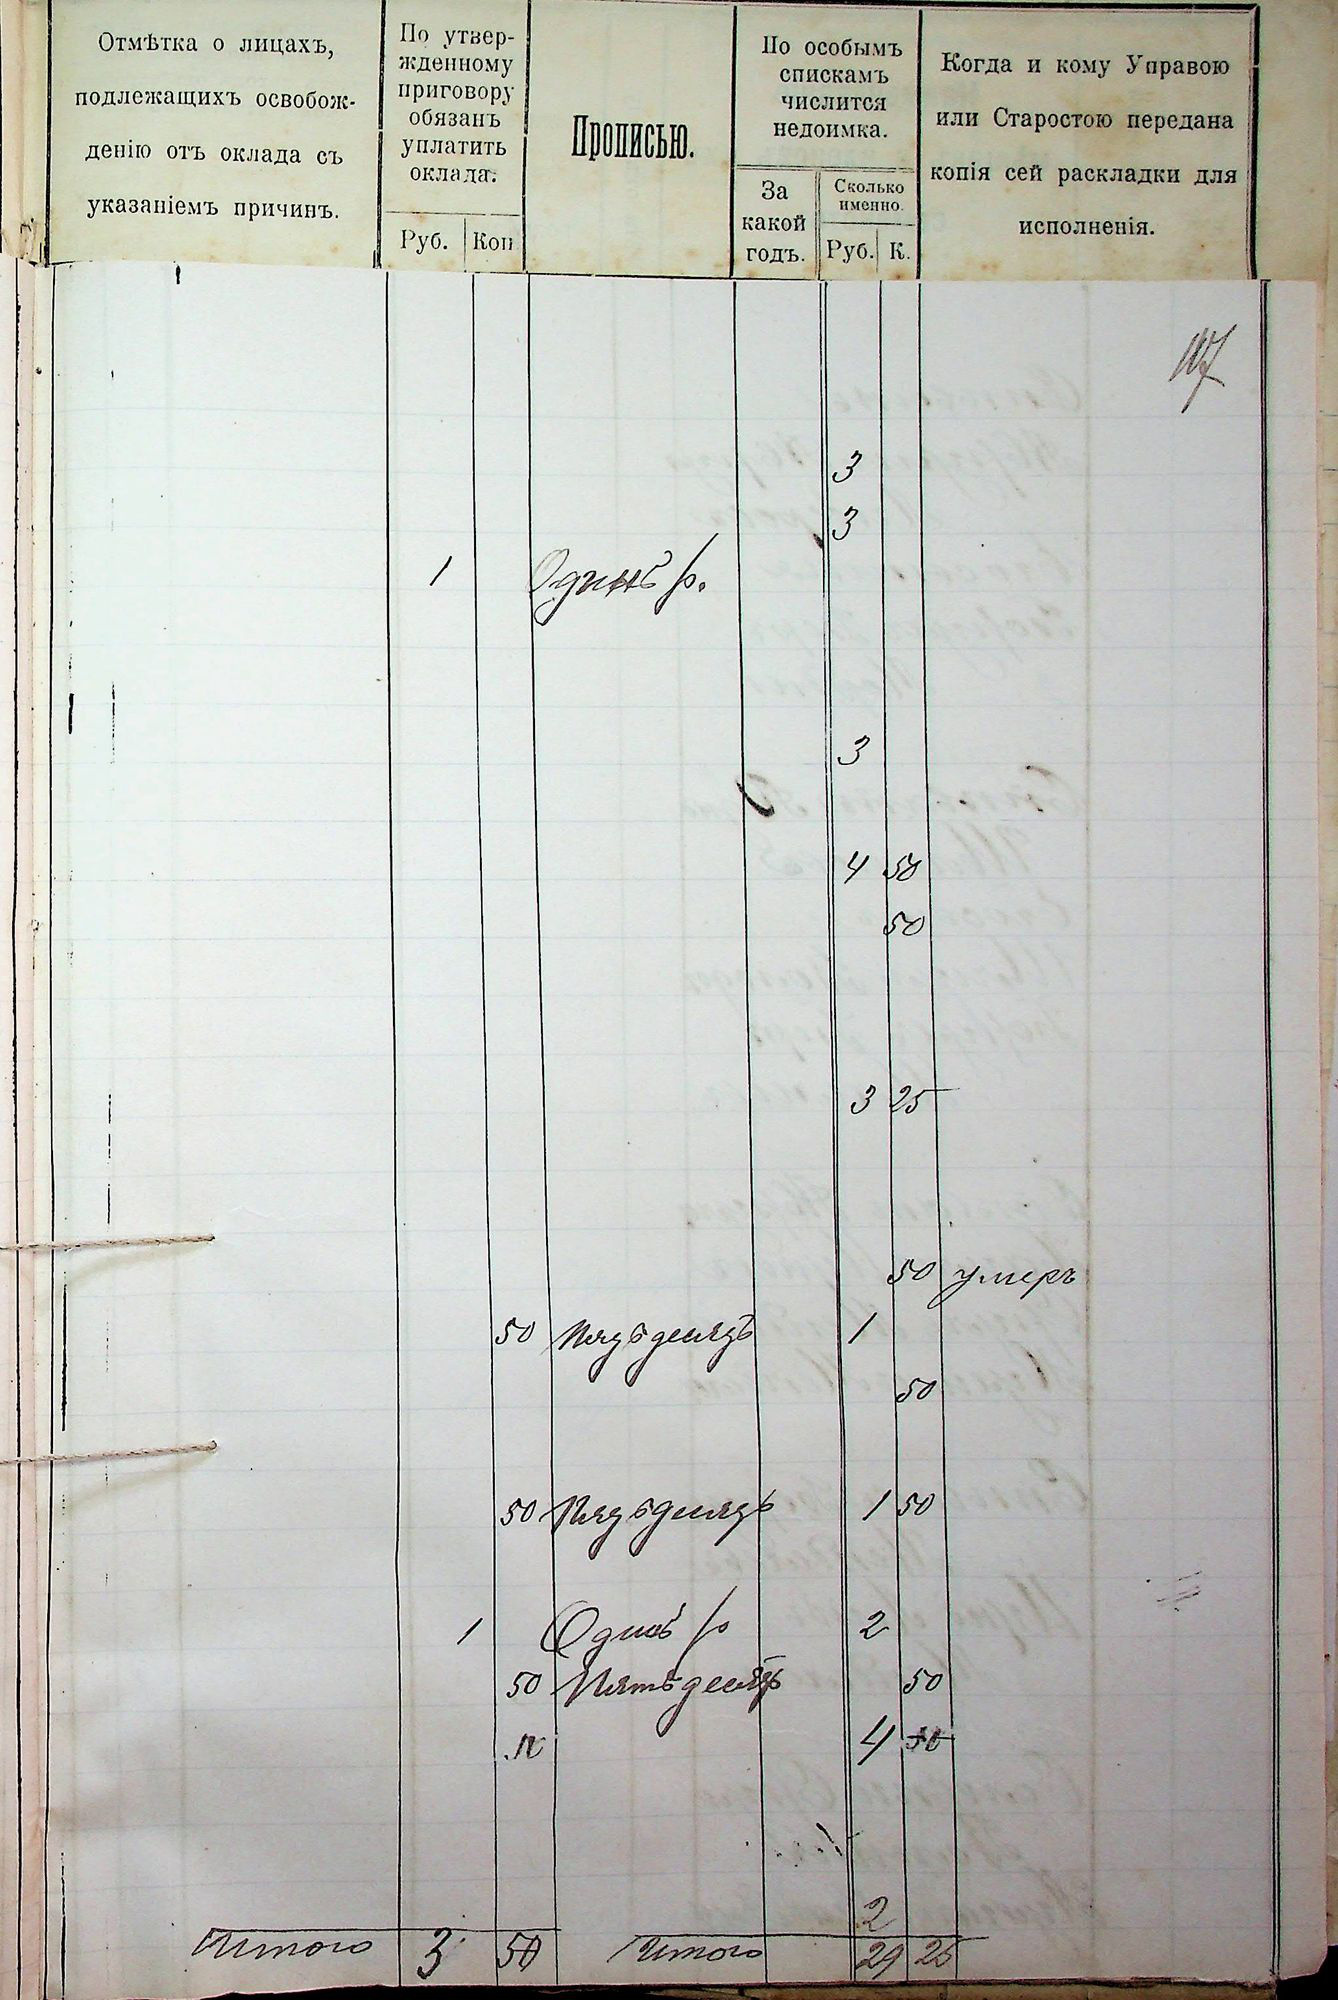 Отмѣтка о лицахъ,
подлежащихъ освобож-
денію отъ оклада съ
указаніемъ причинъ.
По утвер-
жденному
приговору
обязанъ
уплатить
оклада.
Руб. Коп
Прописью.
По особымъ
спискамъ
числится
недоимка.
За
какой
годъ.
Сколько
именно.
Руб. К.
Когда и кому Управою
или Старостою передана
копія сей раскладки для
исполненія.
3
3
1 Одинъ р.
3
4 50
50
3 25
50 умеръ
50 Пядьдесядъ 1
50
50 Пядьдесядъ 1 50
1 Одинъ р 2
50 Пятьдесядъ 50
4
2
Итого 3 50 Итого 29 25